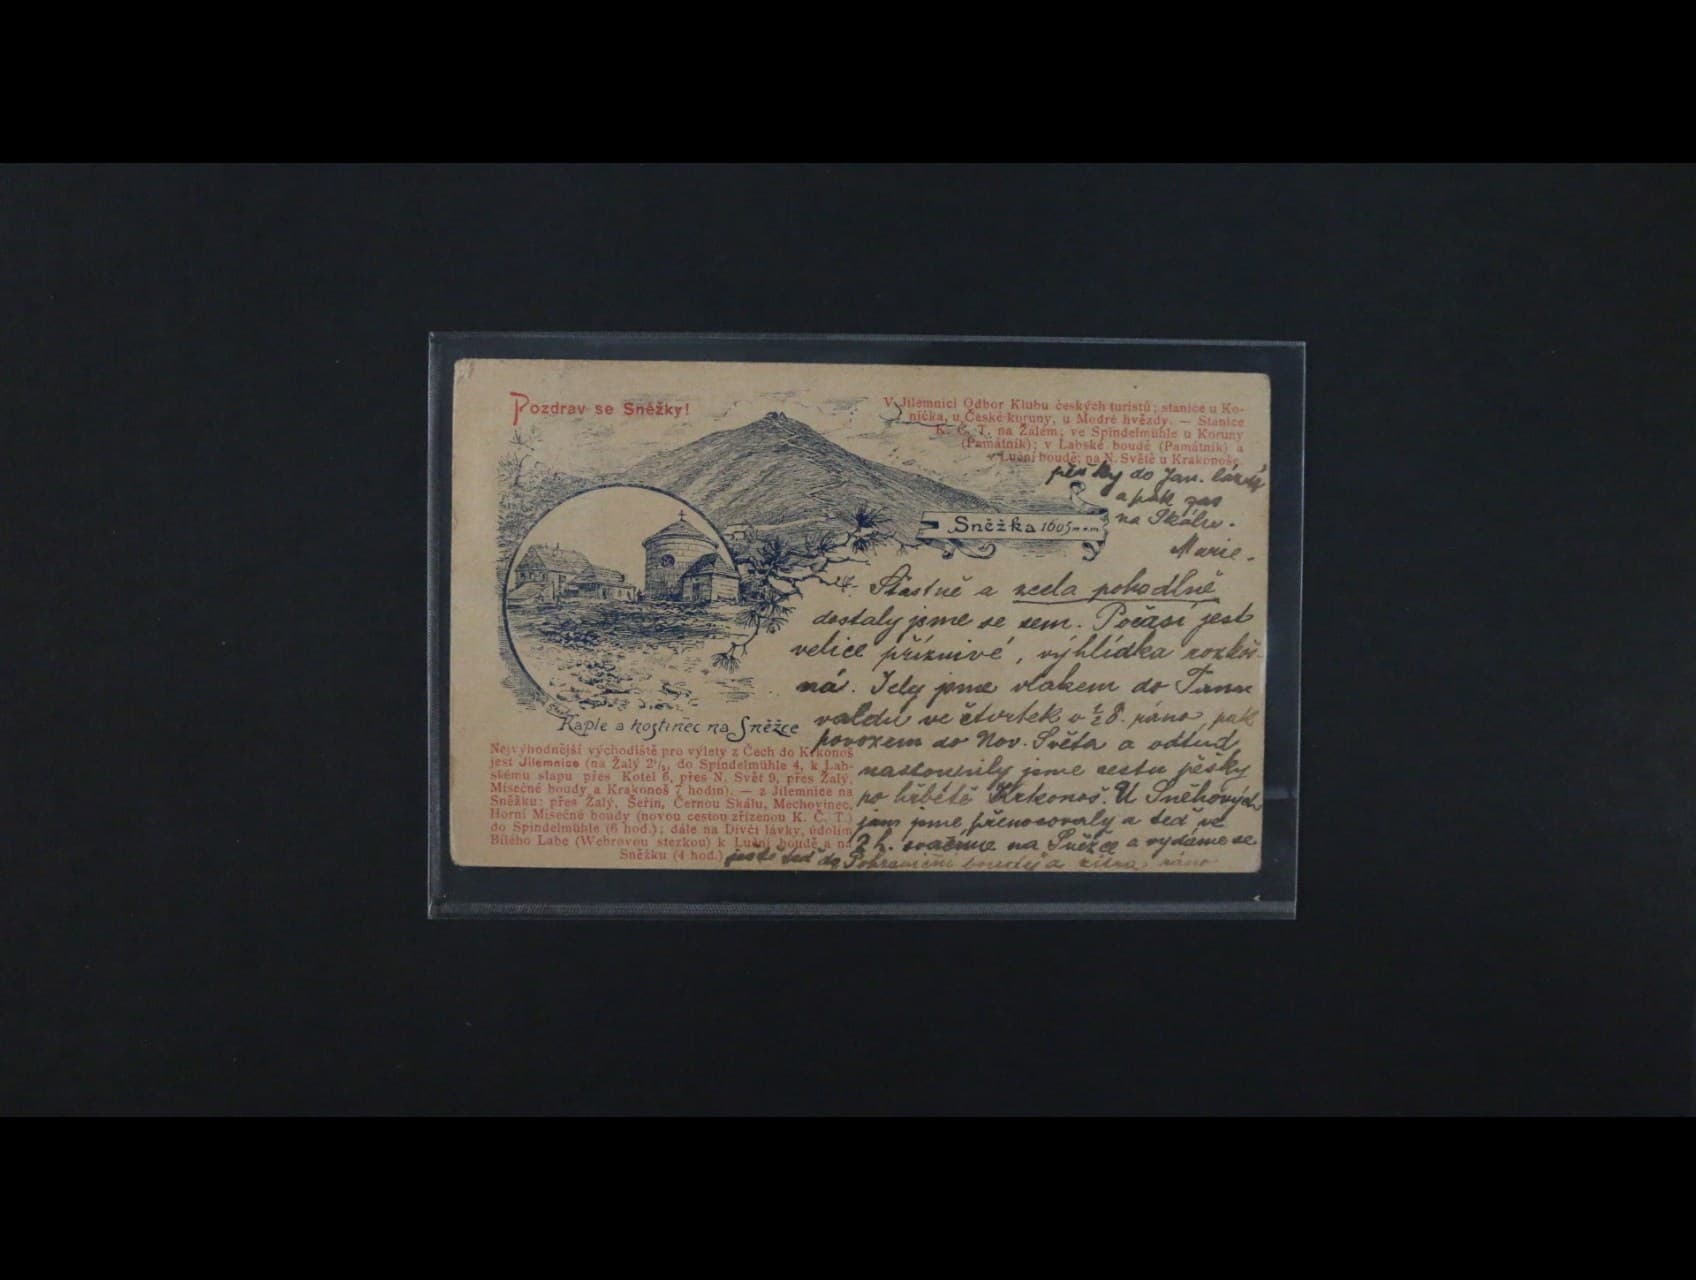 Pozdrav se Sněžky!
V Jilemnici Odbor Klubu českých turistů; stanice u Ko-
níčka, u České koruny, u Modré hvězdy. — Stanice
K. Č. T. na Žalém; ve Špindelmühle u Koruny
(Památník); v Labské boudě (Památník) a
v Luční boudě; na N. Světě u Krakonoše.
Sněžka 1605 m.n.m.
Kaple a hostinec na Sněžce
Nejvýhodnější východiště pro výlety z Čech do Krkonoš
jest Jilemnice (na Žalý 2½, do Špindelmühle 4, k Lab-
skému slapu přes Kotel 6, přes N. Svět 9, přes Žalý,
Mísečné boudy a Krakonoš 7 hodin). — z Jilemnice na
Sněžku: přes Žalý, Šeřín, Černou Skálu, Mechovinec,
Horní Mísečné boudy (novou cestou zřízenou K. Č. T.)
do Špindelmühle (6 hod.); dále na Dívčí lávky, údolím
Bílého Labe (Webrovou stezkou) k Luční boudě a na
Sněžku (4 hod.)
Šťastně a zcela pohodlně
dostaly jsme se sem. Počasí jest
velice příznivé, výhlídka rozkoš-
ná. Jely jsme vlakem do Tann
valdu ve čtvrtek o ½8. ráno, pak
povozem do Nov. Světa a odtud
nastoupily jsme cestu pěšky
po hřbetě Krkonoš. U Sněhových
jam jsme přenocovaly a teď ve
2 h. svačíme na Sněžce a vydáme se
ještě teď do Pohraniční boudy a zítra ráno
pěšky do Jan. lázní
a pak zas
na Skálu.
Marie.